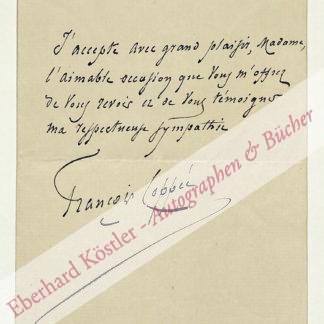 J'accepte avec grand plaisir, Madame,
l'aimable occasion que vous m'offrez
de vous revoir et de vous témoigner
ma respectueuse sympathie
François Coppée
Eberhard Köstler - Autographen & Bücher